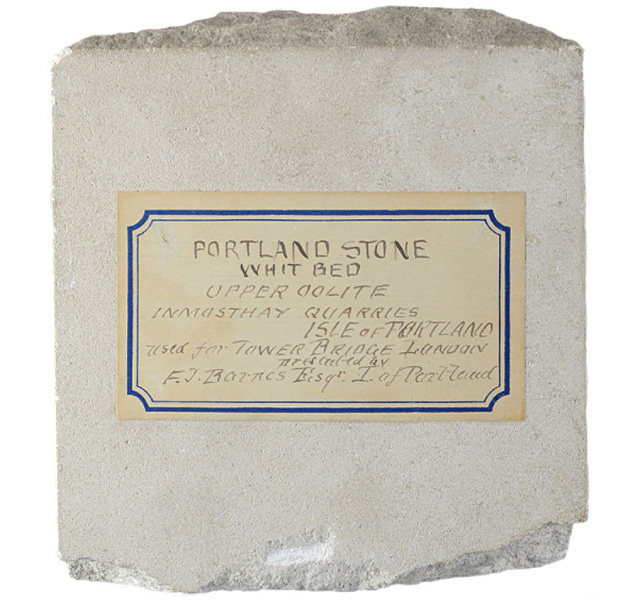 PORTLAND STONE
WHIT BED
UPPER OOLITE
INMOSTHAY QUARRIES
ISLE of PORTLAND
used for TOWER BRIDGE LONDON
presented by
F.J. Barnes Esqr I. of Portland